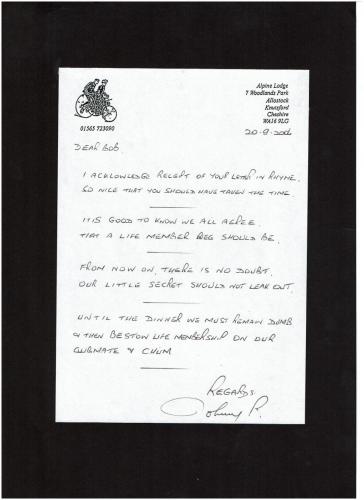 Alpine Lodge
7 Woodlands Park
Allostock
Knutsford
Cheshire
WA16 9LG
01565 723090
20-9-2006
DEAR BOB.
I ACKNOWLEDGE RECEIPT OF YOUR LETTER IN RHYME.
SO NICE THAT YOU SHOULD HAVE TAKEN THE TIME
IT IS GOOD TO KNOW WE ALL AGREE.
THAT A LIFE MEMBER REG SHOULD BE.
FROM NOW ON, THERE IS NO DOUBT.
OUR LITTLE SECRET SHOULD NOT LEAK OUT.
UNTIL THE DINNER WE MUST REMAIN DUMB
& THEN BESTOW LIFE MEMBERSHIP ON OUR
CLUBMATE & CHUM
REGARDS
Johnny P.